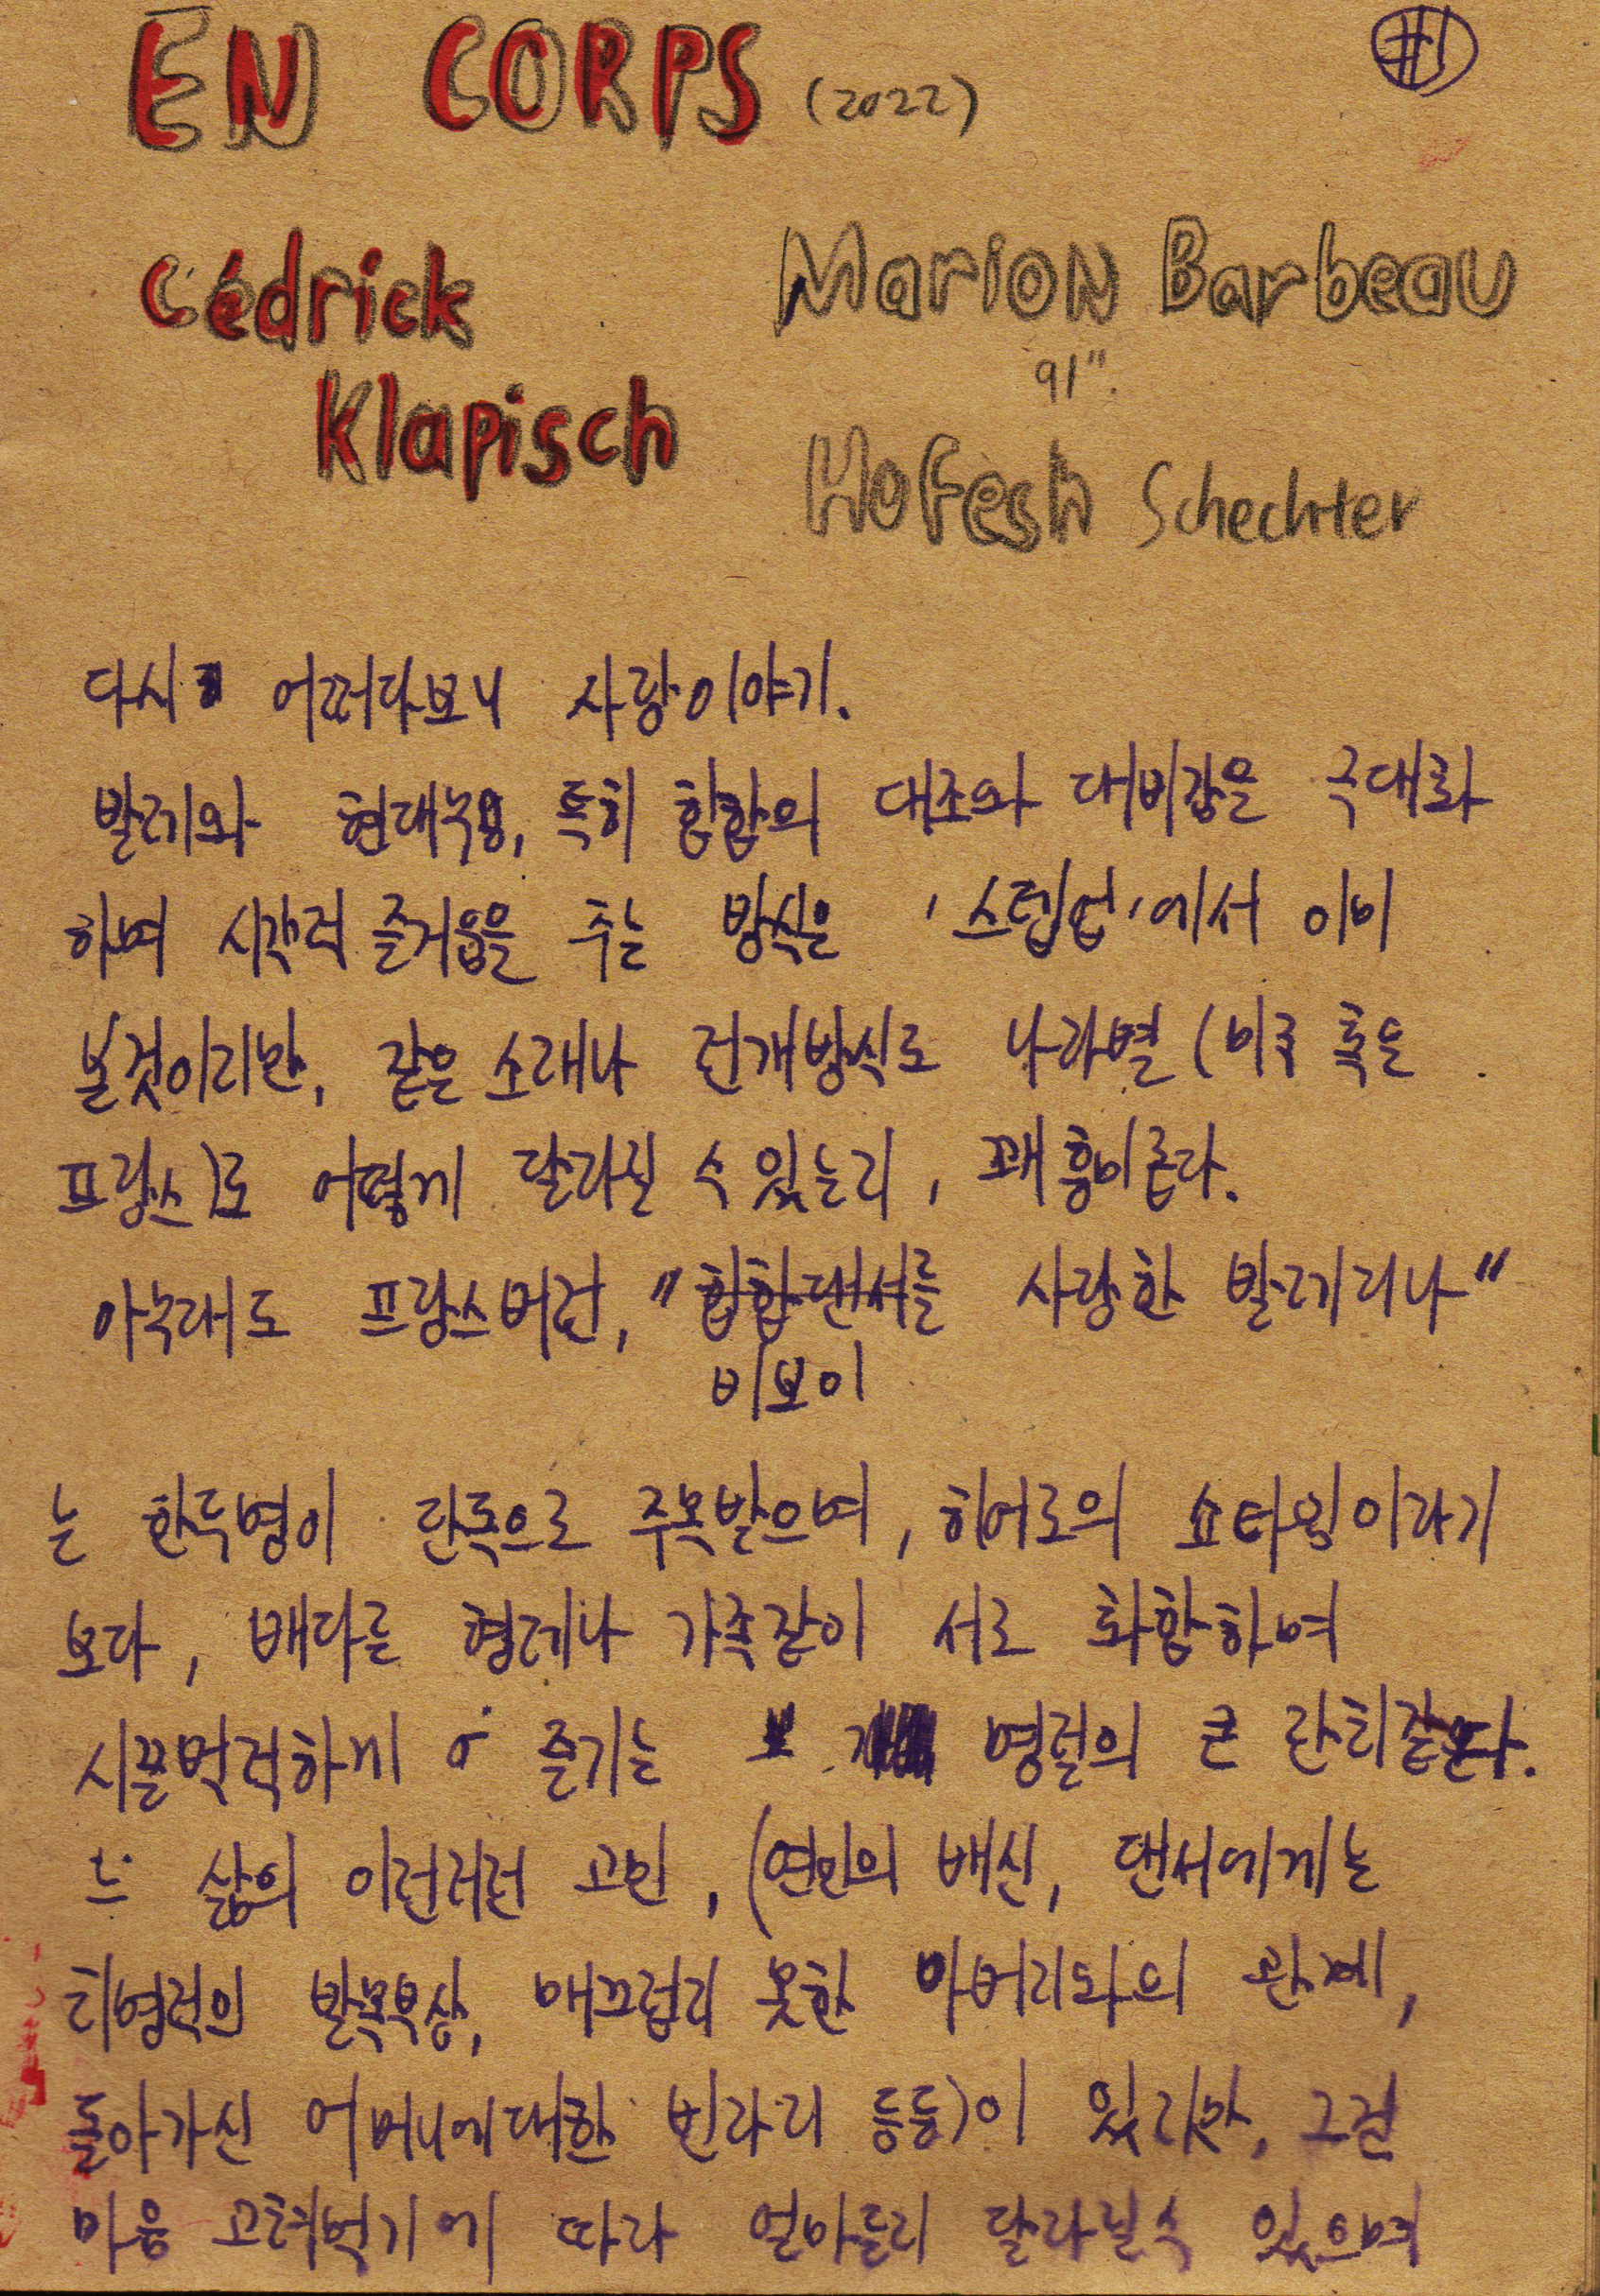 EN CORPS (2022)
#1
Cédrick
Klapisch
Marion Barbeau
91".
Hofesh Schechter
다시 어쩌다보니 사랑이야기.
발레와 현대무용, 특히 힙합의 대조와 대비감을 극대화
하며 시각적 즐거움을 주는 방식은 '스텝업'에서 이미
본것이지만, 같은 소재나 전개방식도 나라별 (미국 혹은
프랑스)로 어떻게 달라질 수 있는지, 꽤 흥미롭다.
아무래도 프랑스버전, "힙합댄서를 사랑한 발레리나"
비보이
는 한두명이 단독으로 주목받으며, 히어로의 쇼타임이라기
보다, 배다른 형제나 가족같이 서로 화합하며
시끌벅적하게 즐기는 명절의 큰 잔치같았다.
삶의 이런저런 고민, (연인의 배신, 댄서에게는
치명적인 발목부상, 매끄럽지 못한 아버지와의 관계,
돌아가신 어머니에대한 빈자리 등등)이 있지만, 그건
마음 고쳐먹기에 따라 얼마든지 달라질수 있으며